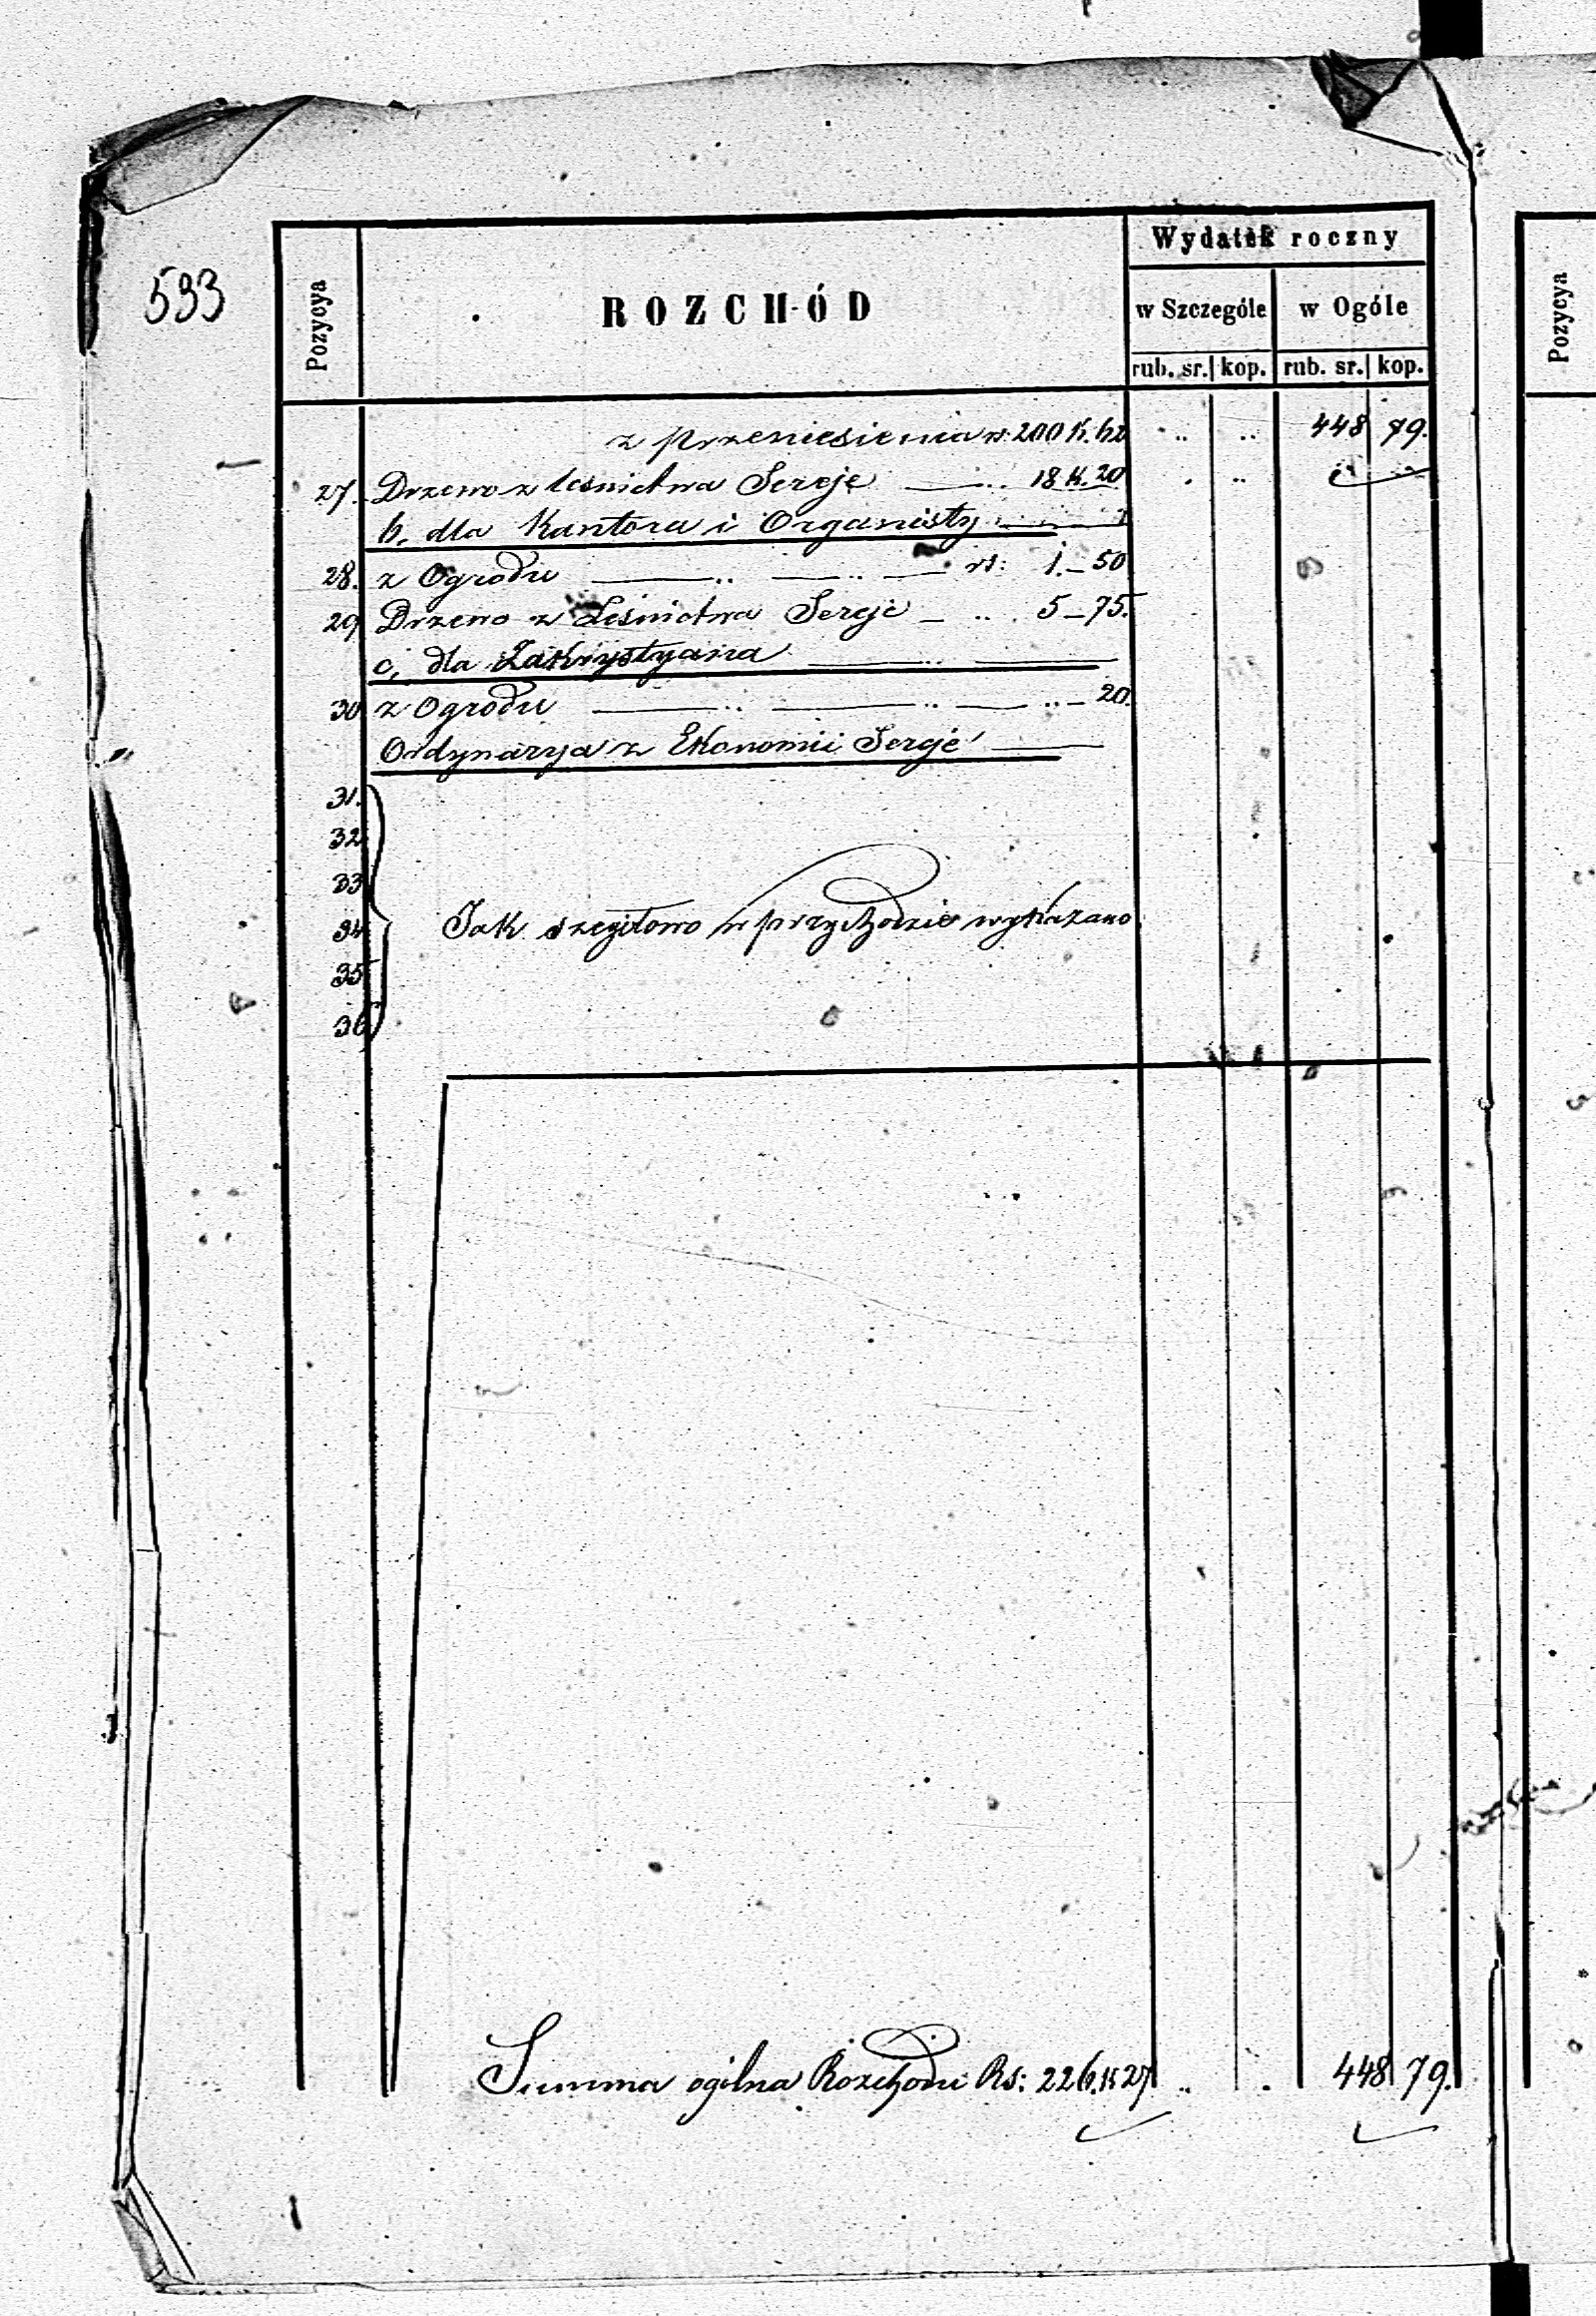 533
Pozycya
ROZCHÓD
Wydatek roczny
w Szczególe
w Ogóle
rub. sr. kop. rub. sr. kop.
z przeniesienia rs. 200 K. 62 .. .. 448 79.
27. Drzewo z leśnictwa Sereje .. 18 K. 20
b, dla Kantora i Organisty
28. z Ogrodu .. .. rs: 1.–50
29 Drzewo z Leśnictwa Sereje – .. 5–75.
c, dla Zakrystyana ..
30 z Ogrodu .. .. ..– 20.
Ordynarya z Ekonomii Sereje
31.
32
33
34 Jak szczegółowo w przychodzie wykazano
35
36
Summa ogólna Rozchodu Rs: 226. K 27 .. . 448 79.
Pozycya